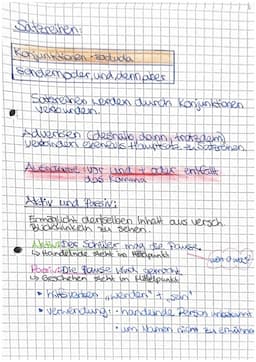 Satzreihen:
Konjunktionen - aduda
sondern, oder, und, denn, aber
Satzreihen werden durch Konjunktionen
verbunden.
Adverbien (deshalb, dann, trotzdem)
verbinden ebenfalls Hauptsätze zu Satzreihen.
Ausnahme: vor und + oder entfällt
das Komma
Aktiv und Passiv:
Ermöglicht denselben Inhalt aus versch.
Blickwinkeln zu sehen.
Aktiv: Der Schüler mag die Pause.
↳ Handelnde steht im Mittelpunkt
Passiv: Die Pause wird gemacht.
↳ Geschehen steht im Mittelpunkt
• Hilfsverben "werden" + "sein"
• Verwendung: • handelnde Person unbekannt
• um Namen nicht zu erwähnen